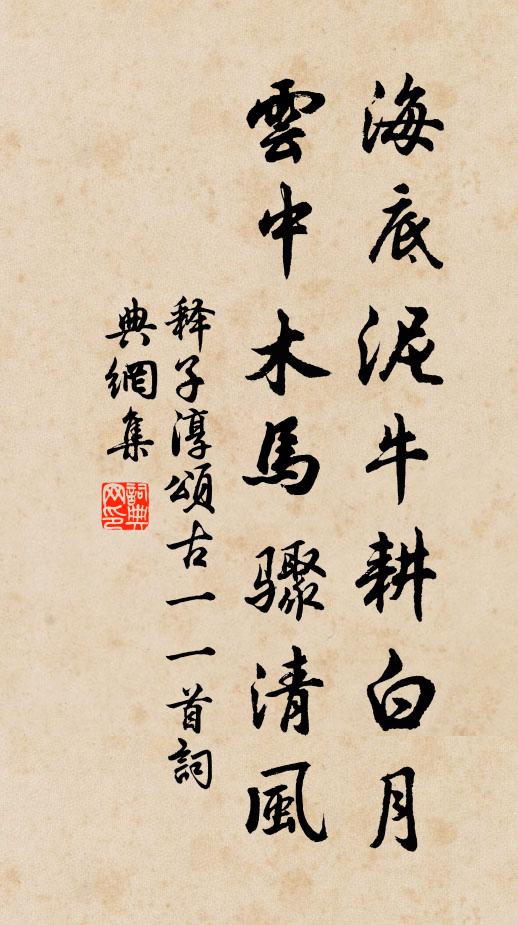 海底泥牛耕白月
雲中木馬驟清風
释子淳頌古一一首詞
典網集
詞典
网印